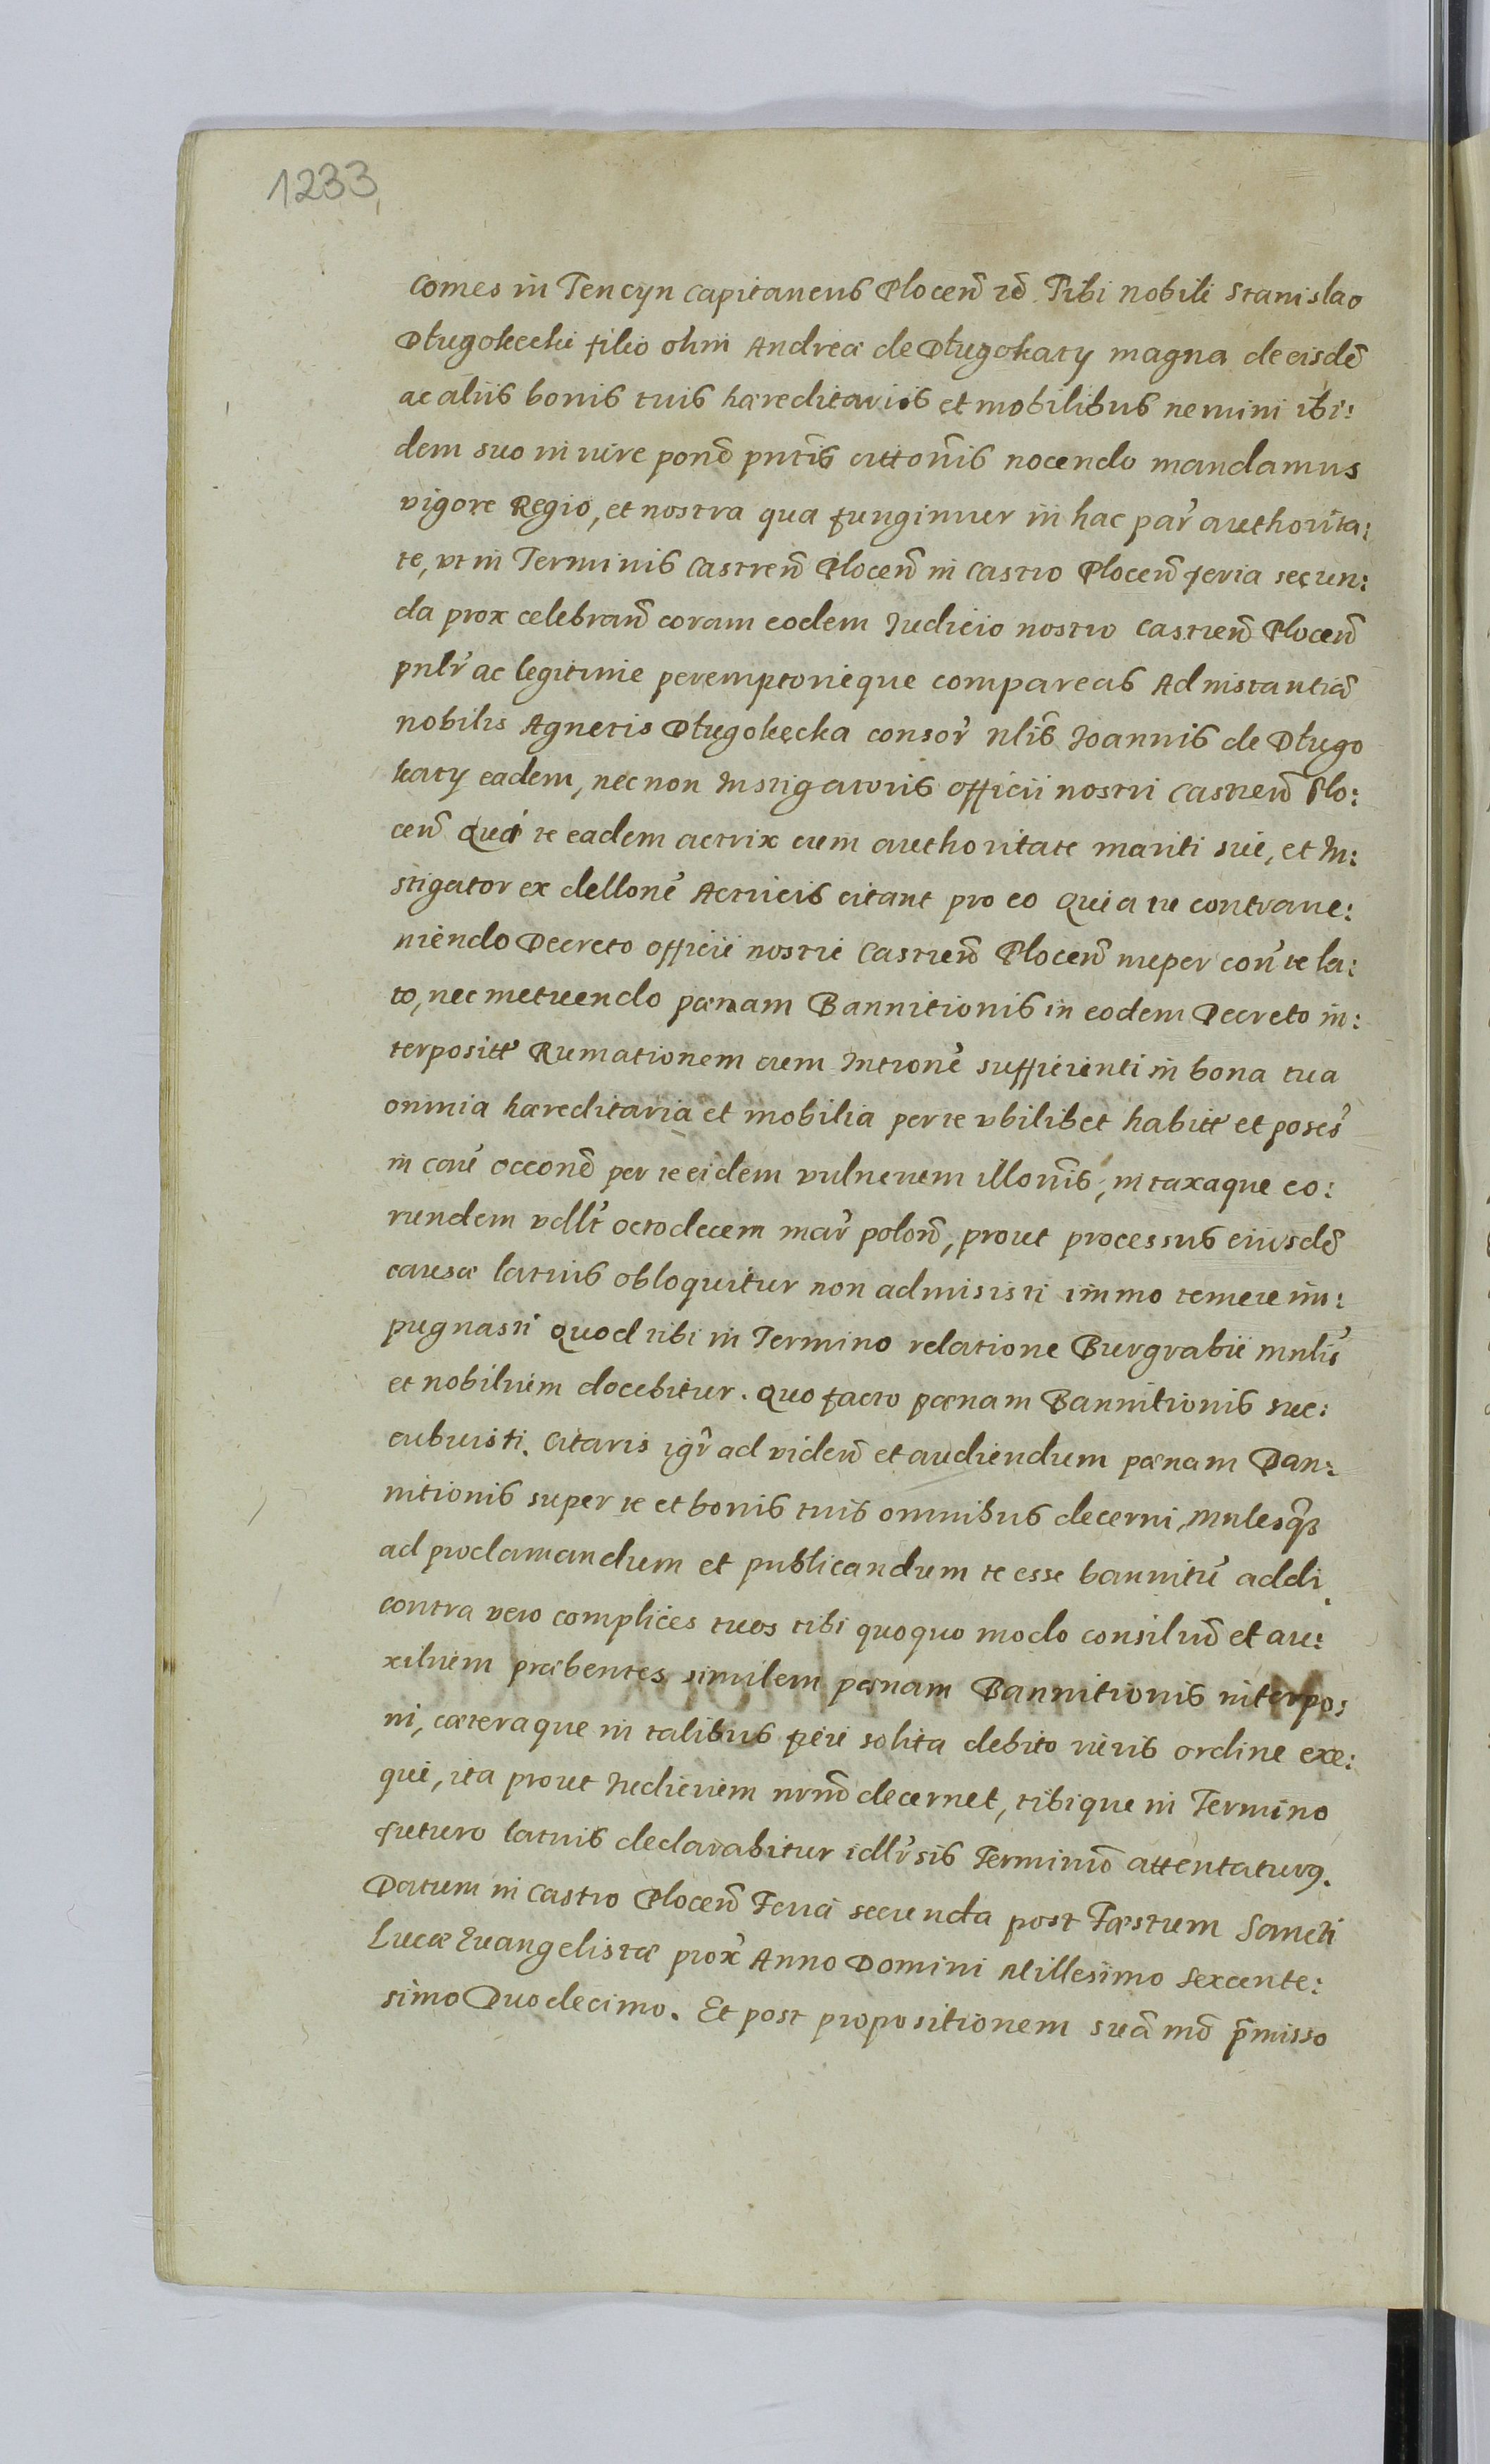 1233
Comes in Tencyn Capitaneus Plocen̄ zc̄ Tibi nobili Stanislao
Długokęcki filio olim Andreæ de Długokąty magna de eisdē
ac aliis bonis tuis hæreditariis et mobilibus nemini ibi:
dem suo in iure ponē pn̄tis cittōnis nocendo mandamus
vigore Regio, et nostra qua fungimur in hac par̄ authorita:
te, vt in Terminis Castren̄ Plocen̄ in Castro Plocen̄ feria secun:
da prox celebran̄ coram eodem Iudicio nostro Castren̄ Plocen̄
pnlr̄ ac legitime peremptorieque compareas Ad instantiā
nobilis Agnetis Długokęcka consor̄ nl̄is Joannis de Długo
kąty eadem, nec non Instigatoris officii nostri Castren̄ Plo:
cen̄ Qui te eadem actrix cum authoritate mariti sui, et In:
stigator ex dellonē Actricis citant pro eo Quia tu contrave:
niendo Decreto officii nostri Castren̄ Plocen̄ nuper con̄ te la:
to, nec metuendo pœnam Bannitionis in eodem Decreto in:
terpositt̄ Rumationem cum Introne̅ sufficienti in bona tua
omnia hæreditaria et mobilia per te vbilibet habitt̄ et poses̄
in cau̅ occōne per te eidem vulnerum illonis, in taxaque eo:
rundem vdllt̄ octodecem mar̄ polon̄, prout processus eiusdē
causæ latius obloquitur non admisisti immo temere im:
pugnasti Quod tibi in Termino relatione Burgrabii mnlis̄
et nobilium docebitur. Quo facto pœnam Bannitionis suc:
cubuisti. Citaris igr̄ ad viden̄ et audiendum pœnam Ban:
nitionis super te et bonis tuis omnibus decerni, mnlesq̄
ad proclamandum et publicandum te esse bannitū addi.
contra vero complices tuos tibi quoquo modo consiliū et au:
xilium præbentes similem pœnam Bannitionis interpos
ni, cæteraque in talibus fieri solita debito iuris ordine exe:
qui, ita prout Iudicium nrm̄ decernet, tibique in Termino
futuro latius declarabitur idlr̄ sis Terminū attentaturus.
Datum in Castro Plocen̄ Feria secunda post Fæstum Sancti
Lucæ Euangelistæ prox̄ Anno Domini Millesimo Sexcente:
simo Duodecimo. Et post propositionem suā mō p̄misso